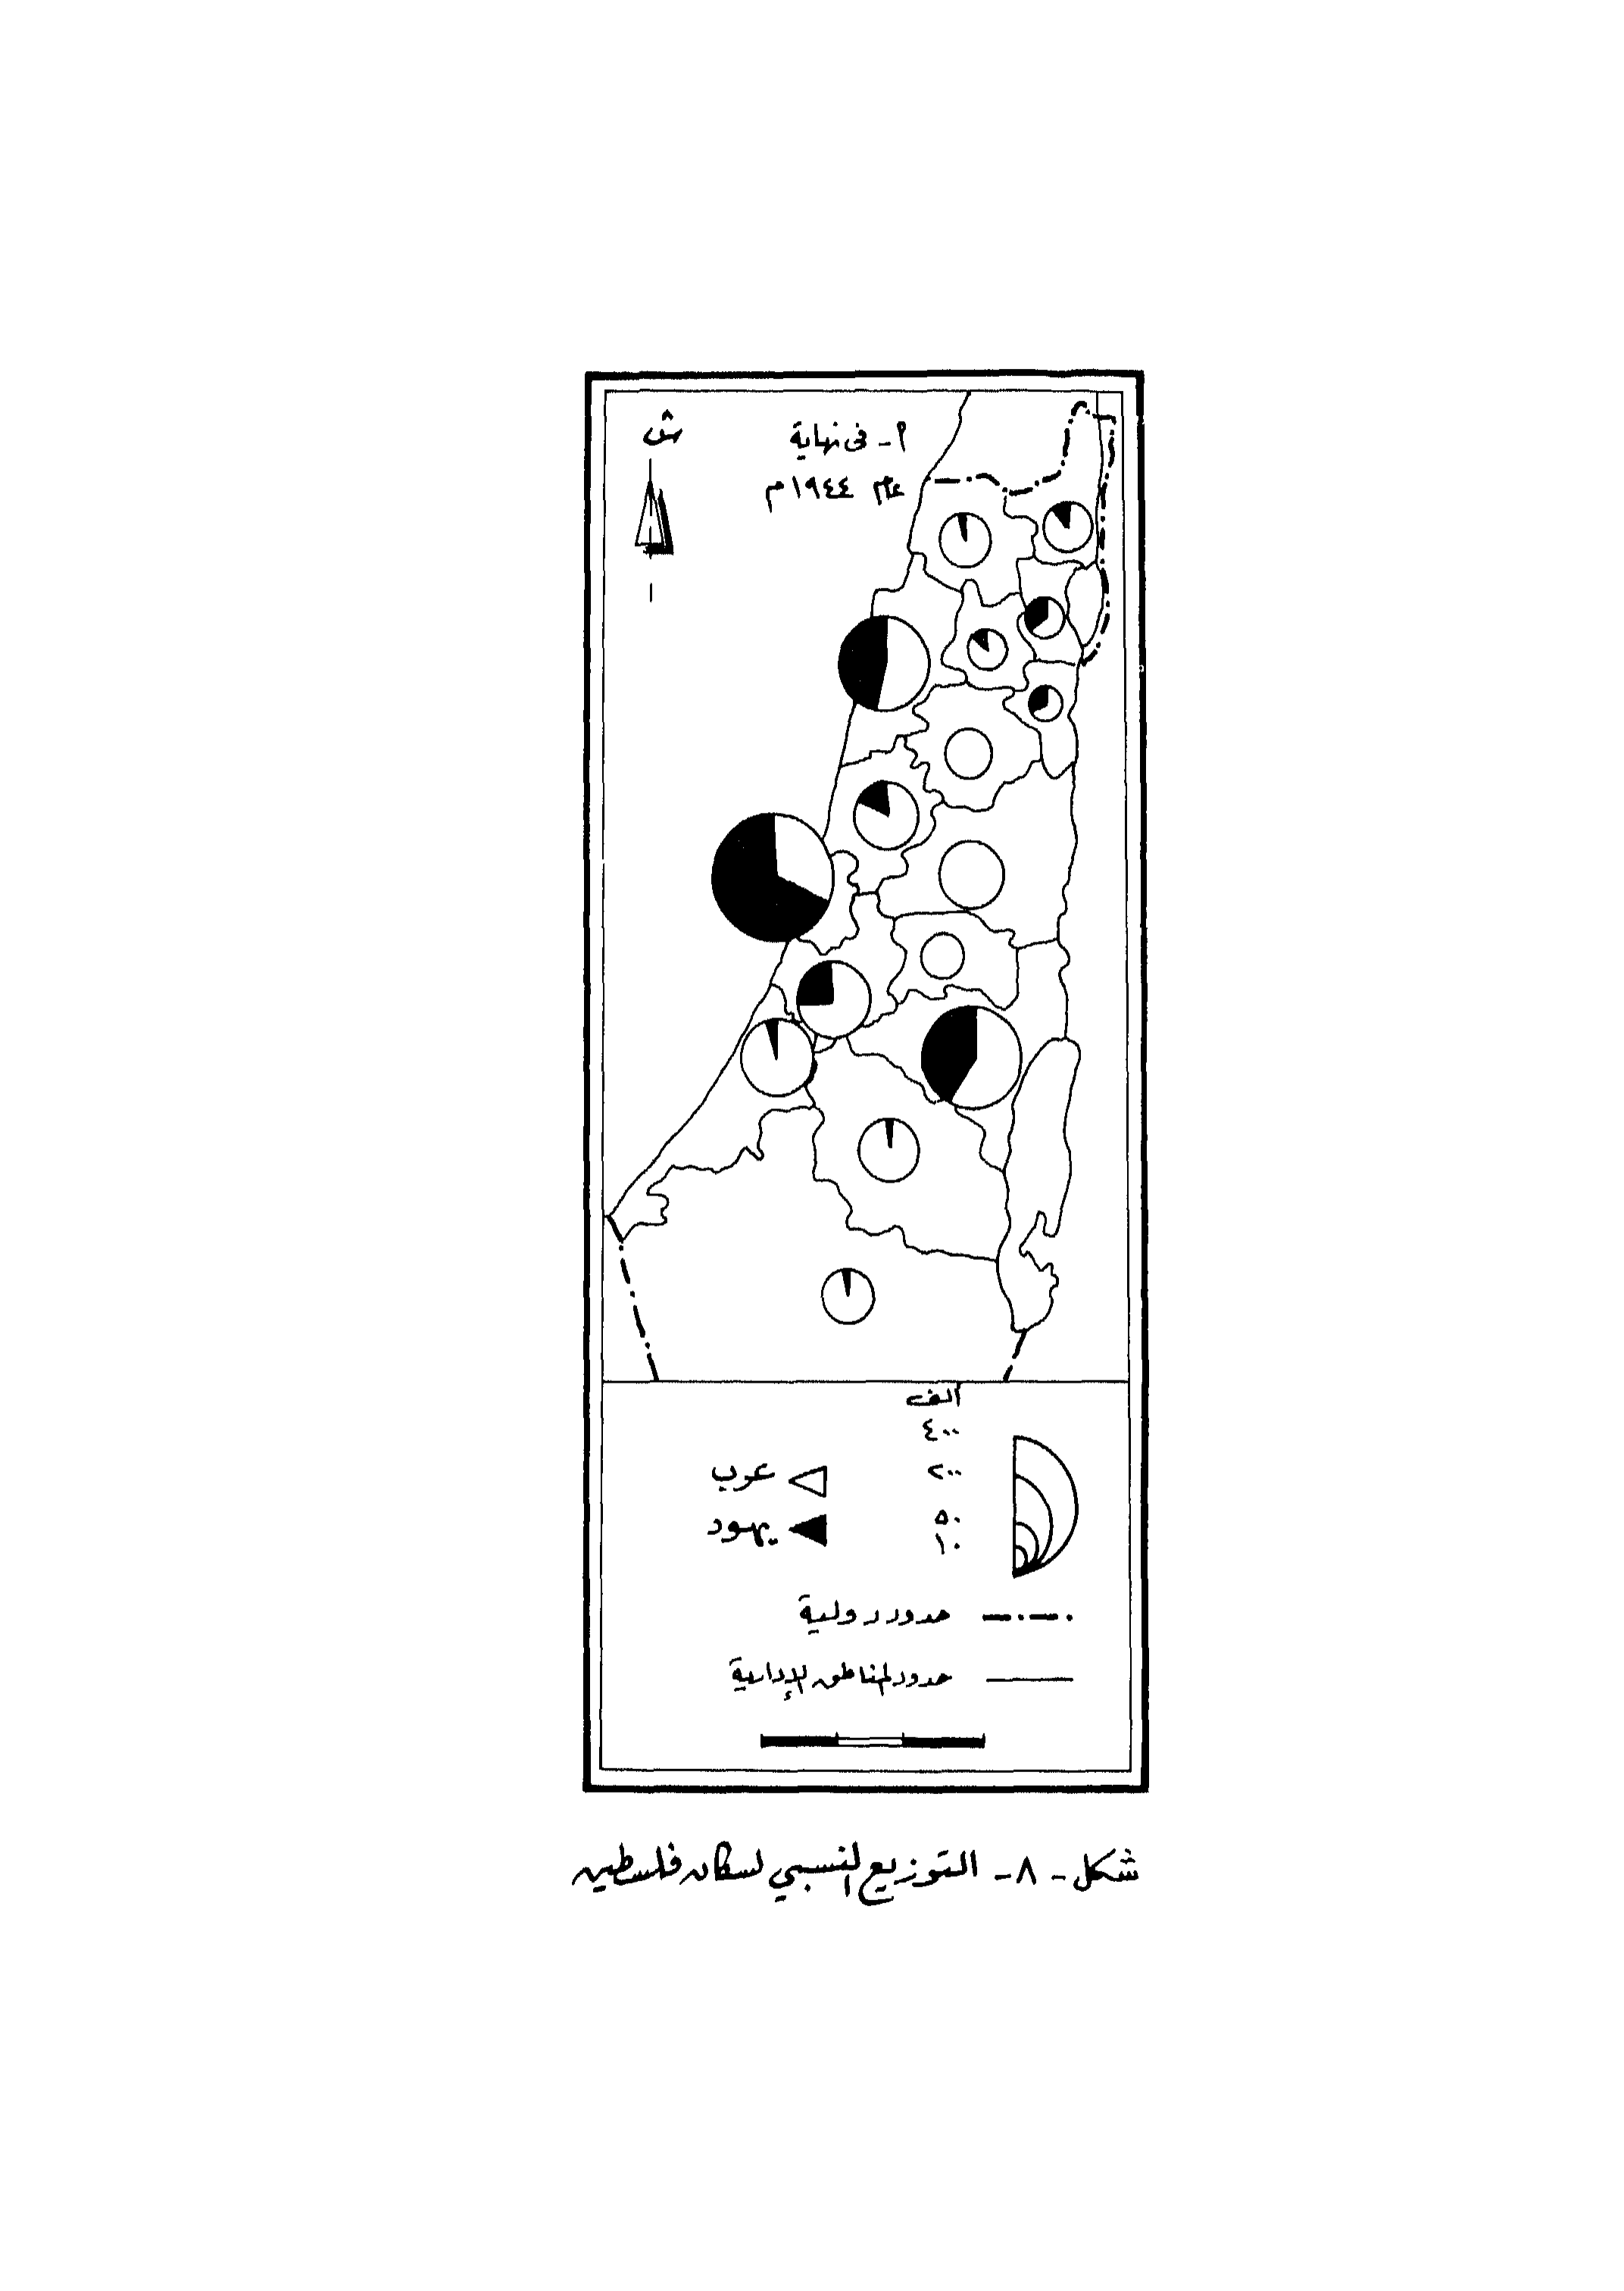 ش
أ - فى نهاية
عام ١٩٤٤م
ألف
٤٠٠
٢٠٠
٥٠
١٠
عرب
يهود
حدود دولية
حدود المناطق الإدارية
شكل - ٨ - التوزيع النسبي لسكان فلسطين